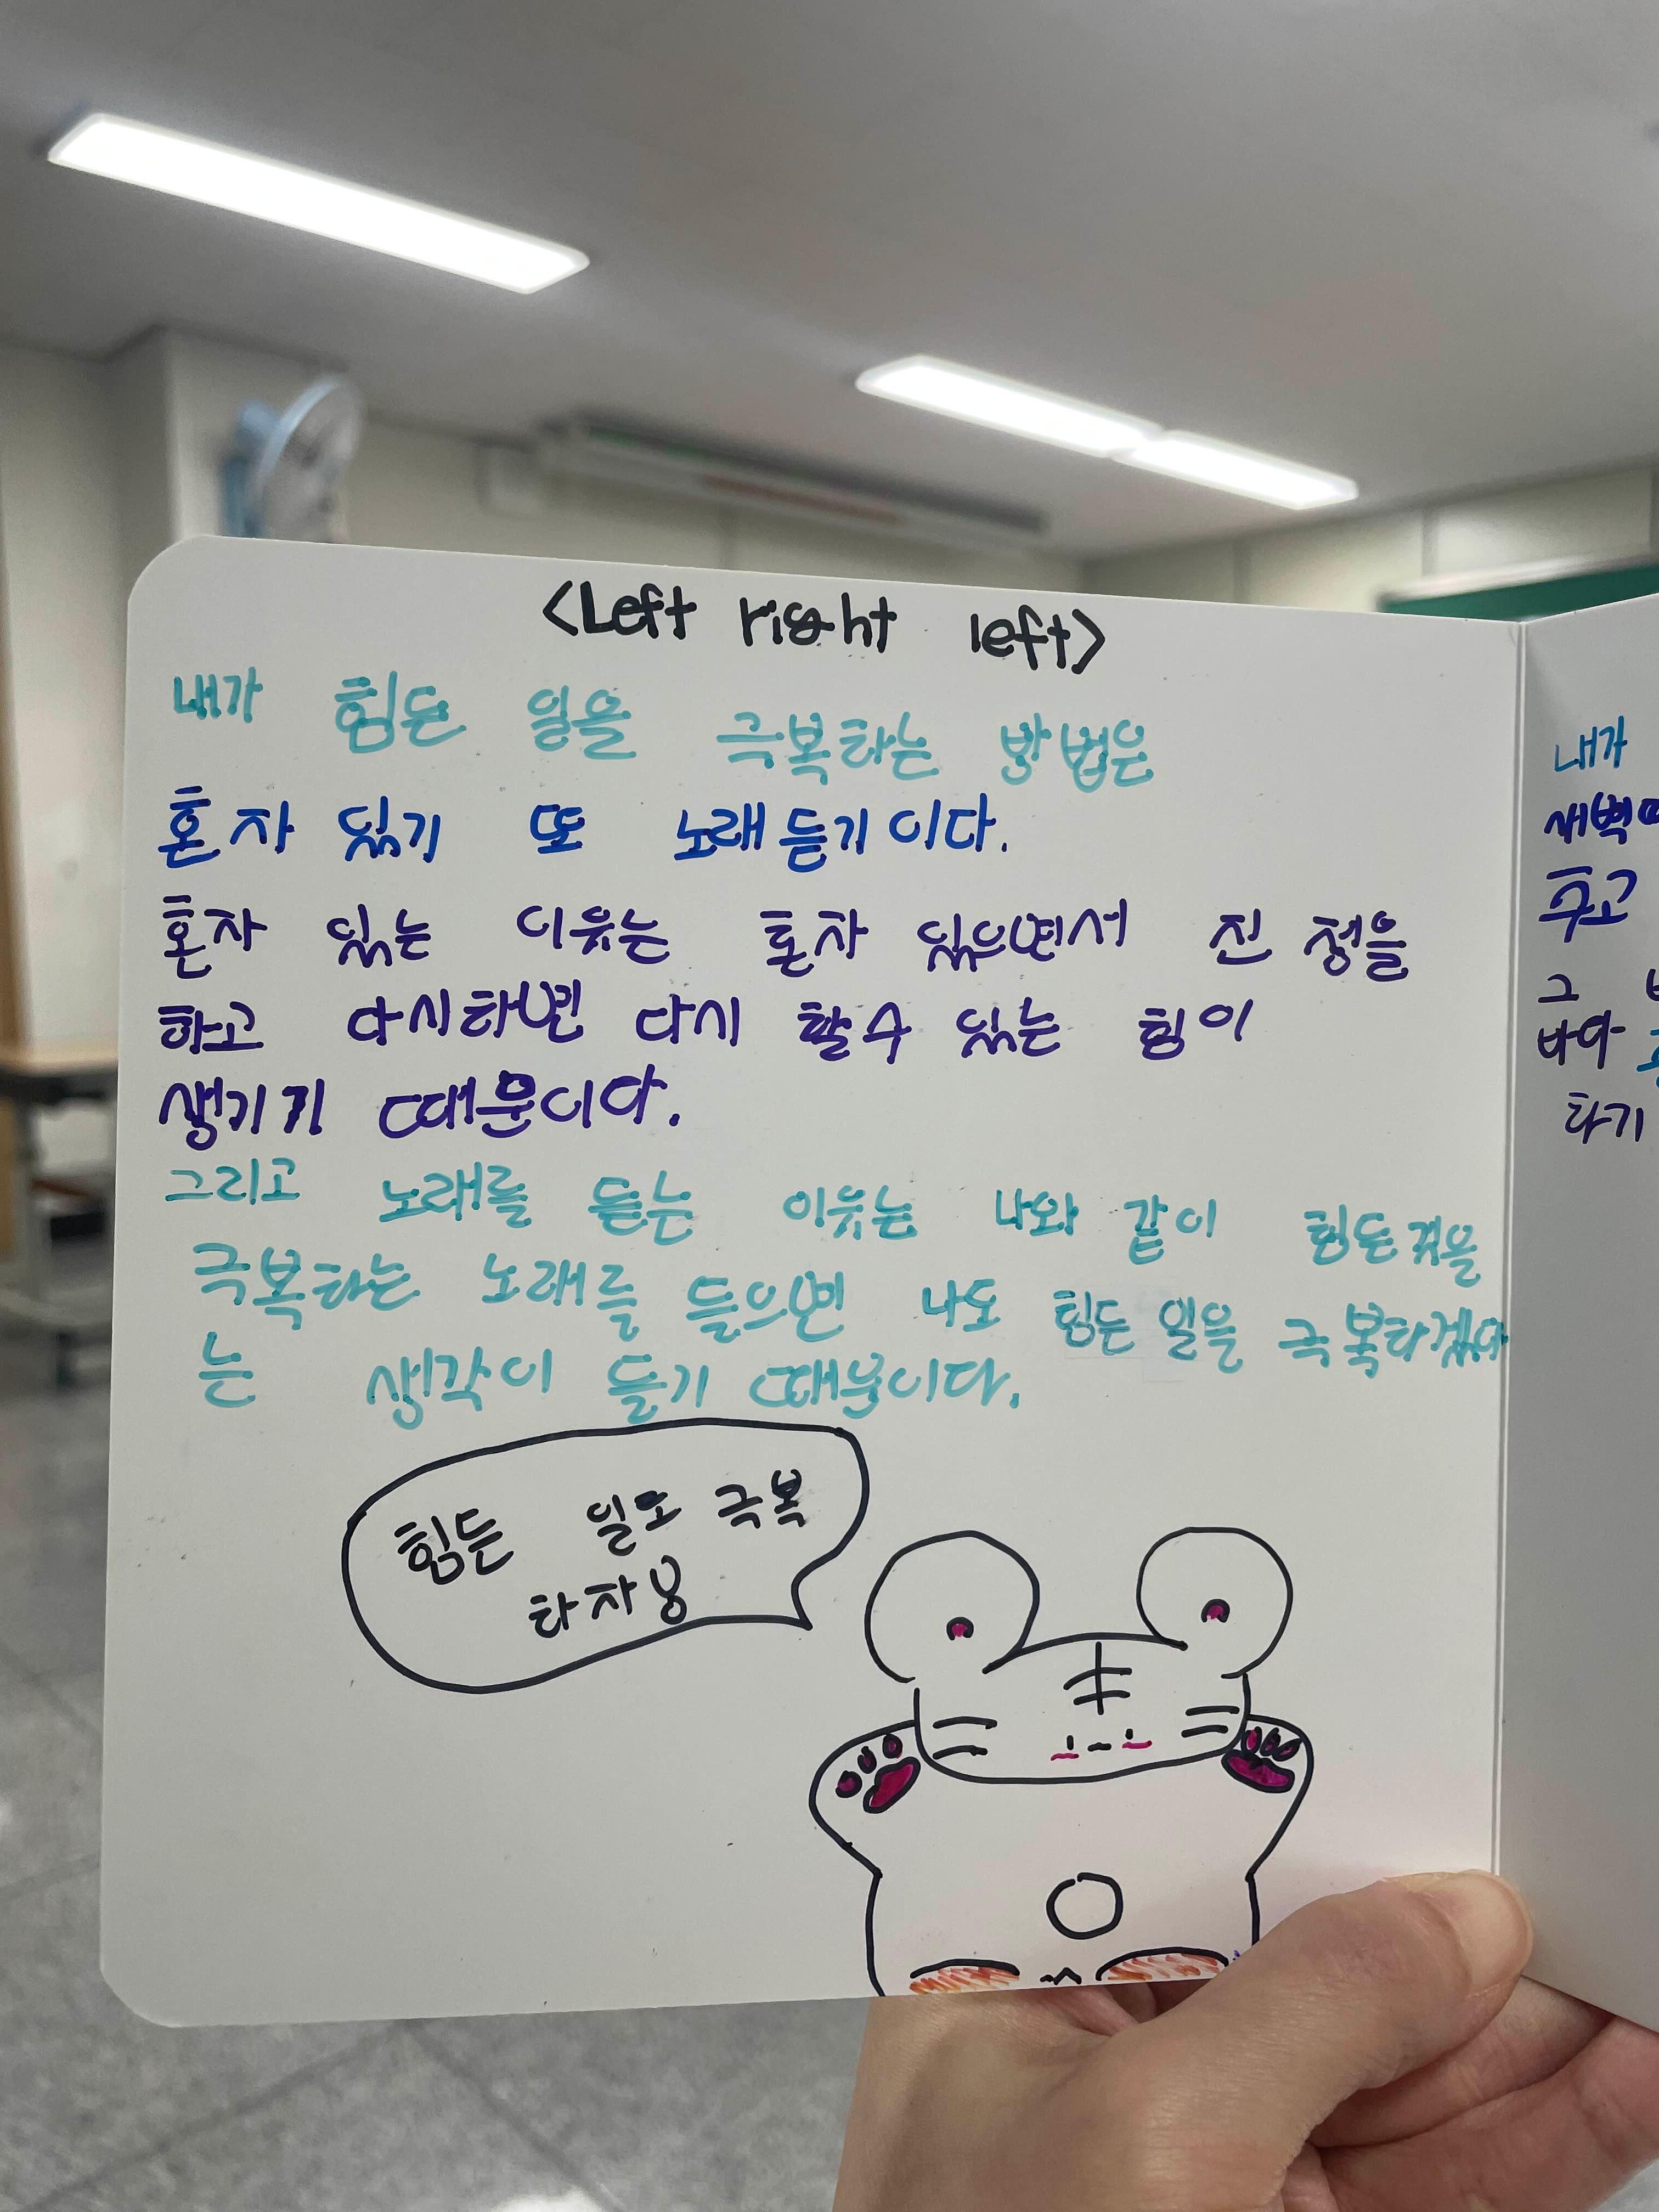 <Left right left>
내가 힘든 일을 극복하는 방법은
혼자 있기 또 노래 듣기이다.
혼자 있는 이유는 혼자 있으면서 진정을
하고 다시하면 다시 할수 있는 힘이
생기기 때문이다.
그리고 노래를 듣는 이유는 나와 같이 힘든것을
극복하는 노래를 들으면 나도 힘든 일을 극복하겠다
는 생각이 들기 때문이다.
힘든 일도 극복
하자용
내가
새벽
추고
그
바다
하기